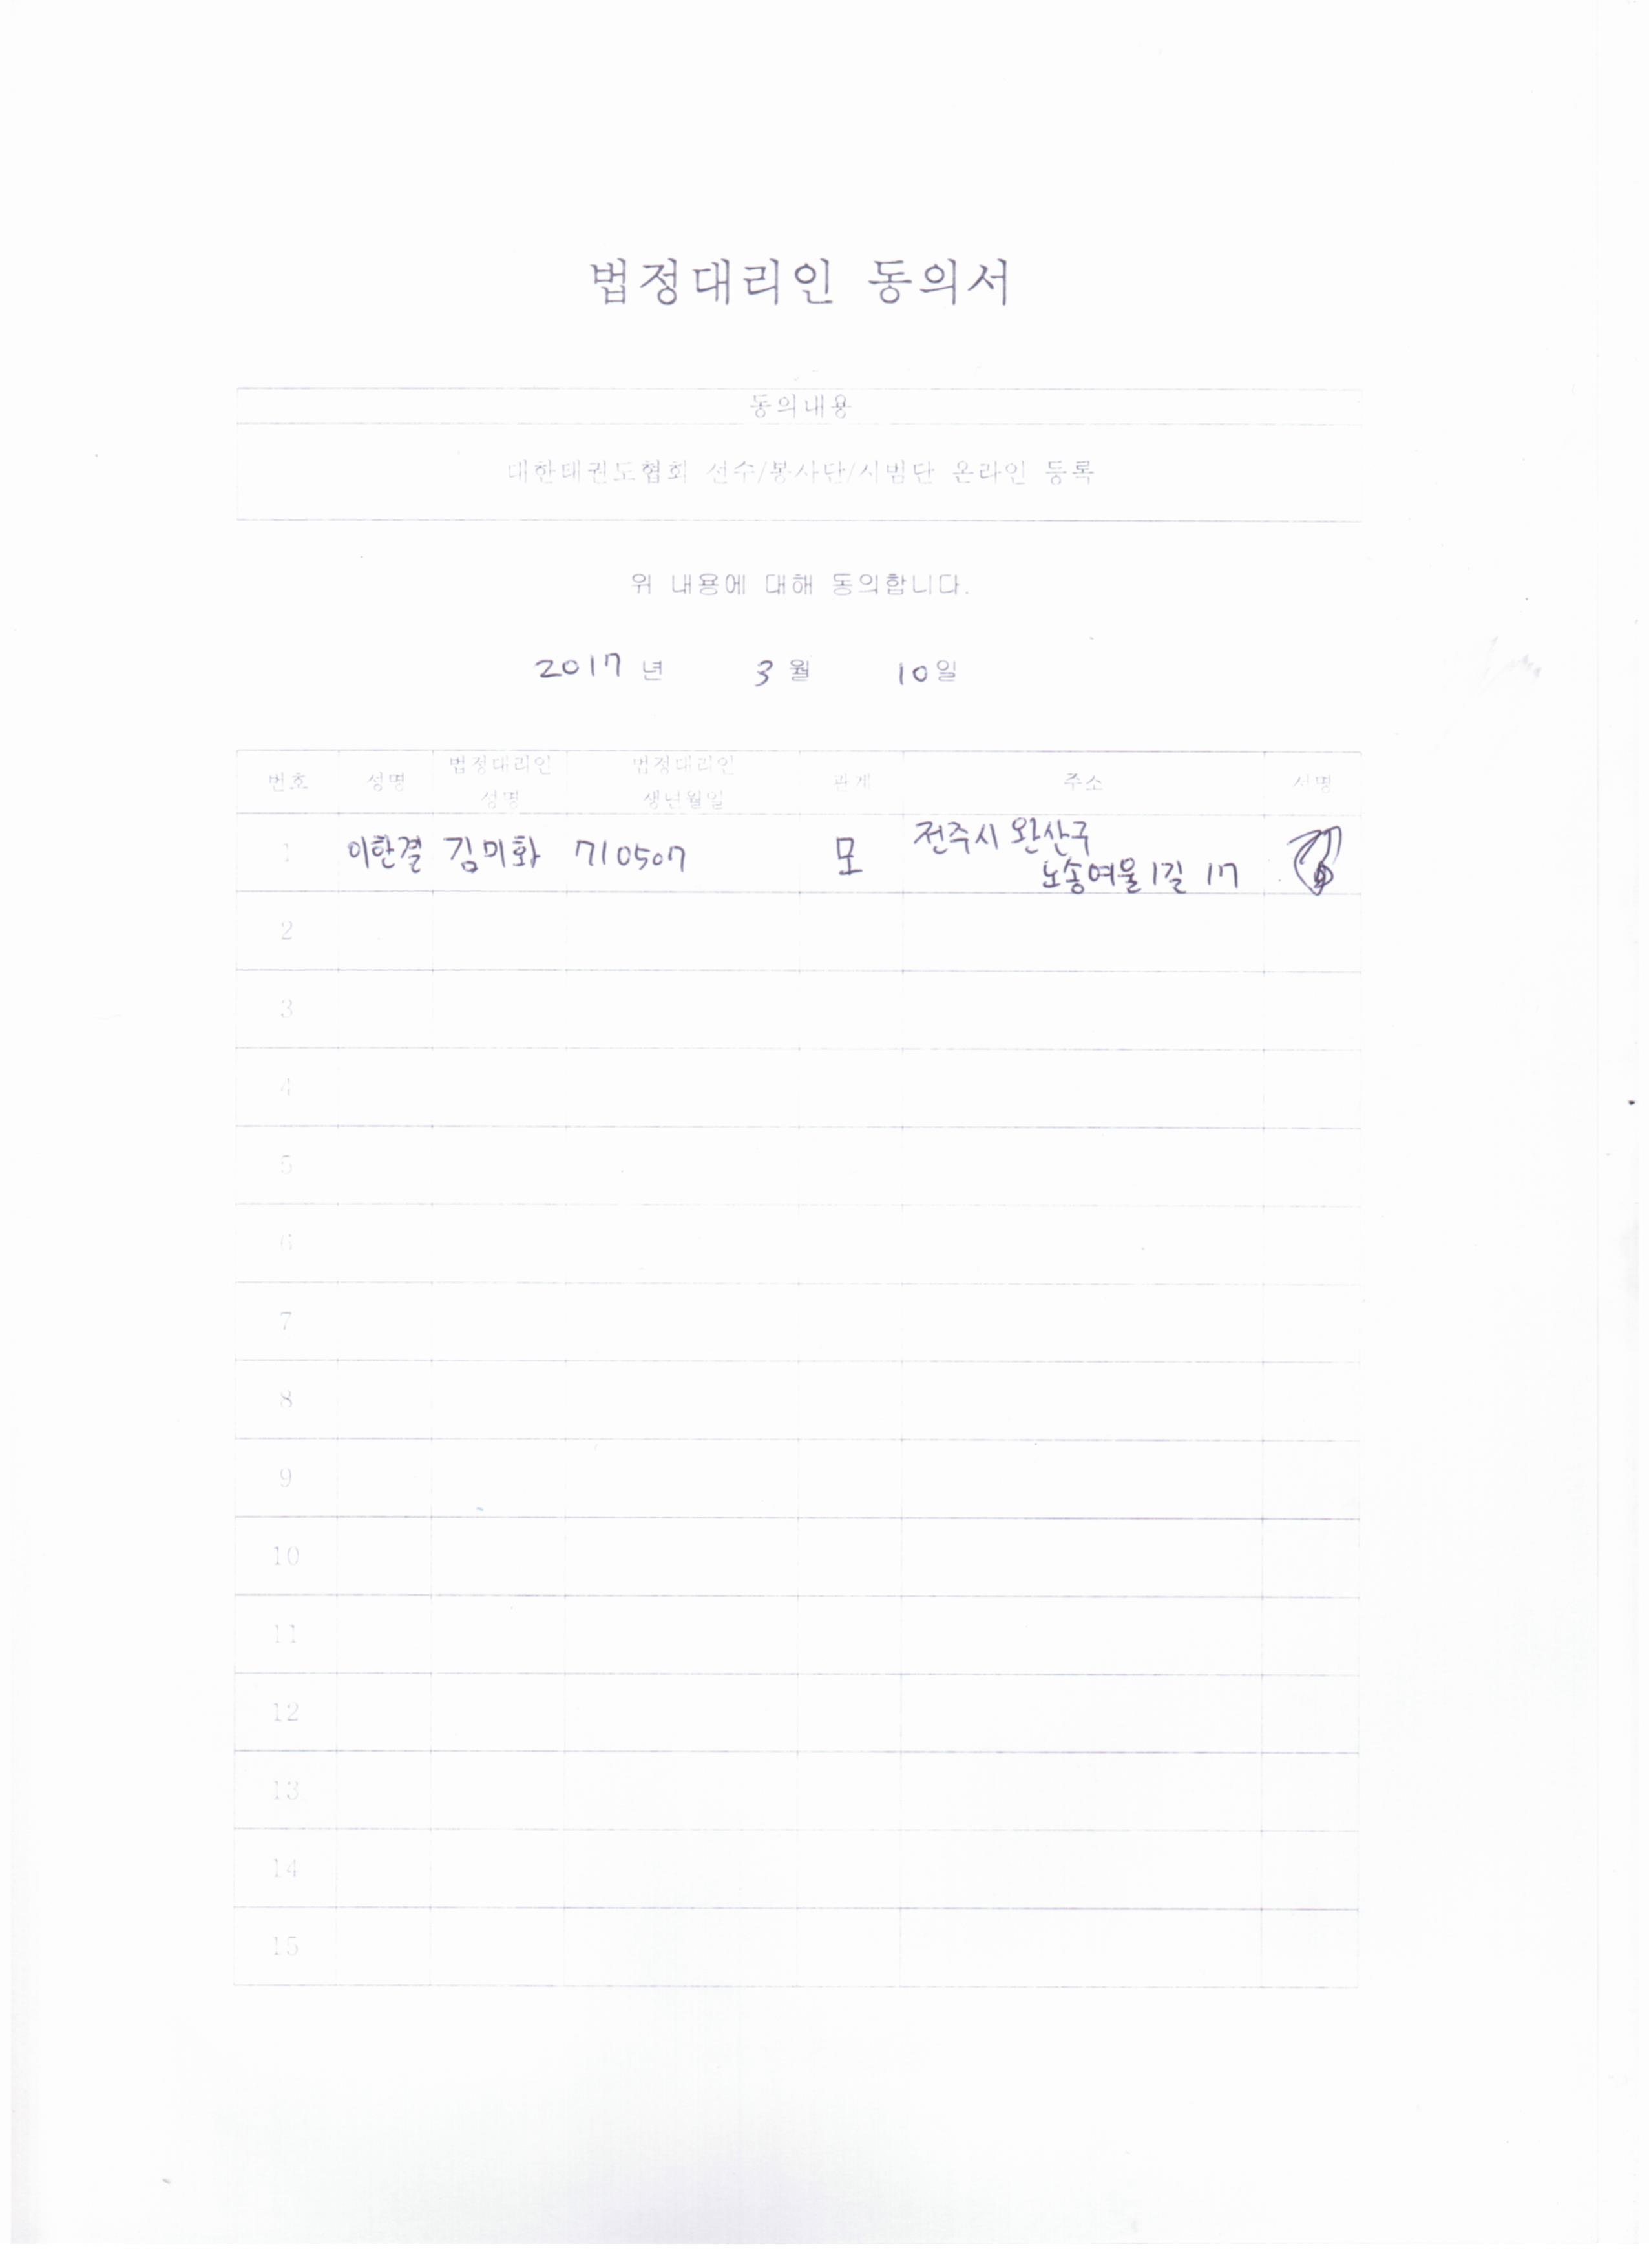 법정대리인 동의서
동의내용
대한태권도협회 선수/봉사단/시범단 온라인 등록
위 내용에 대해 동의합니다.
2017 년 3 월 10 일
번호 성명 법정대리인 성명 법정대리인 생년월일 관계 주소 서명
1 이한결 김미화 710507 모 전주시 완산구
노송여울1길 17
2
3
4
5
6
7
8
9
10
11
12
13
14
15